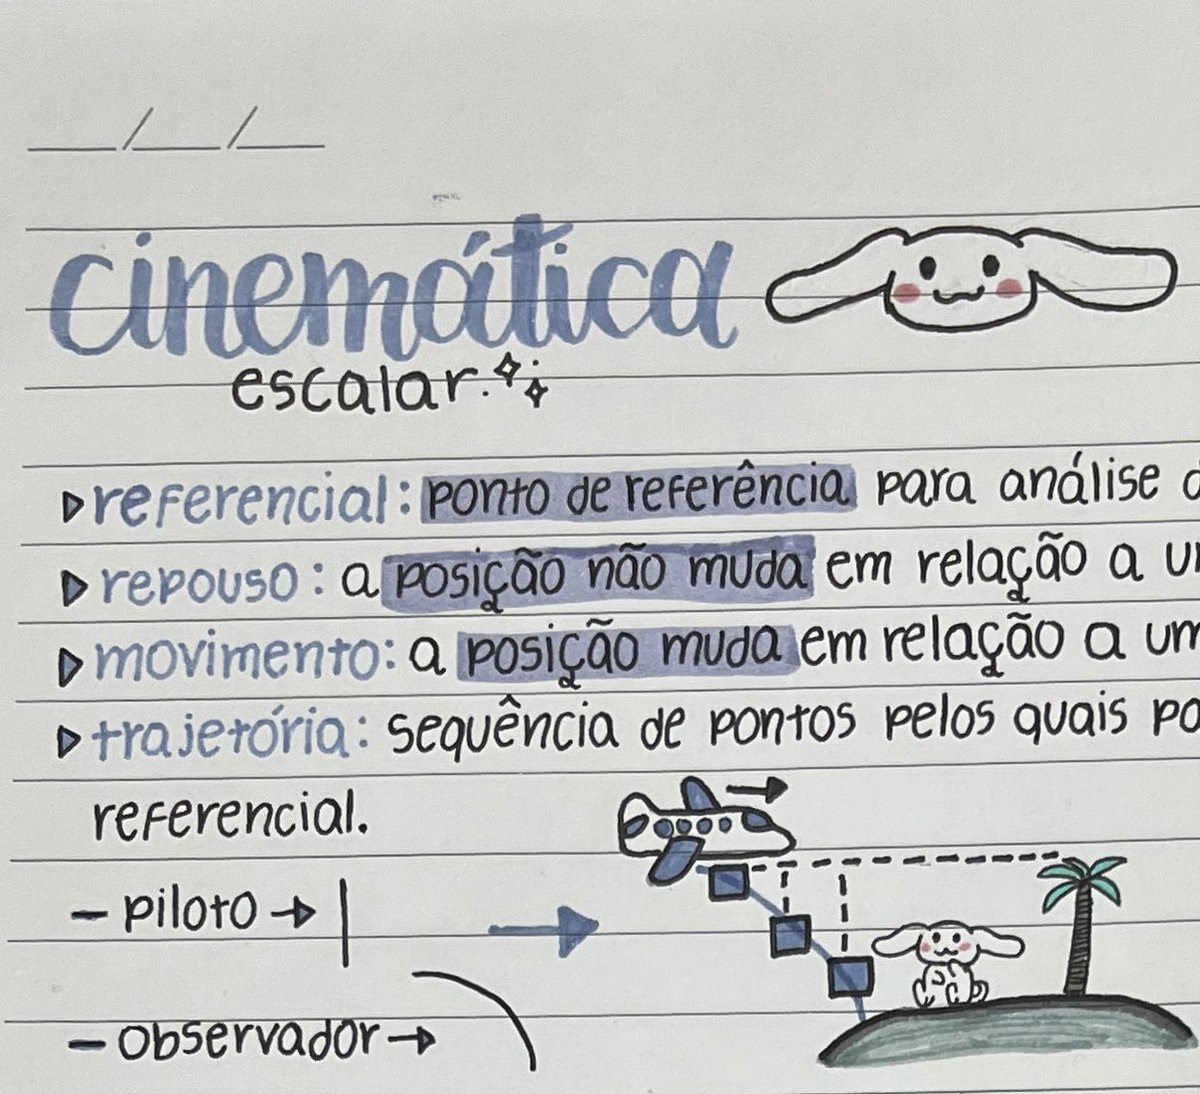 __/__/__
cinemática
escalar
referencial: ponto de referência para análise
repouso: a posição não muda em relação a
movimento: a posição muda em relação a um
trajetória: sequência de pontos pelos quais
referencial.
- piloto →
- observador →